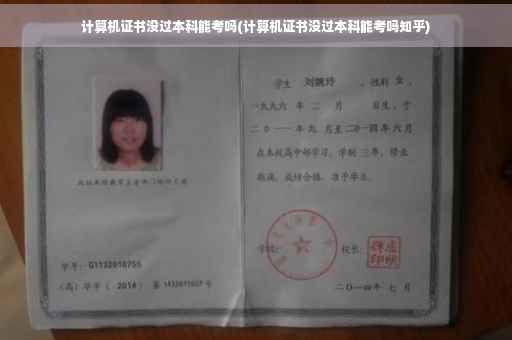 计算机证书没过本科能考吗(计算机证书没过本科能考吗知乎)
学生 刘婉玲 ,性别 女 ,
一九九六 年 二 月 日生,于
二〇一一 年 九 月至 二〇一四 年 六 月
在本校高中部学习,学制 三 年,修业
期满,成绩合格,准予毕业。
学校:
校长:
学号: G1132010755
(高)毕字( 2014 )第 1432011027 号
二〇一四 年 七 月